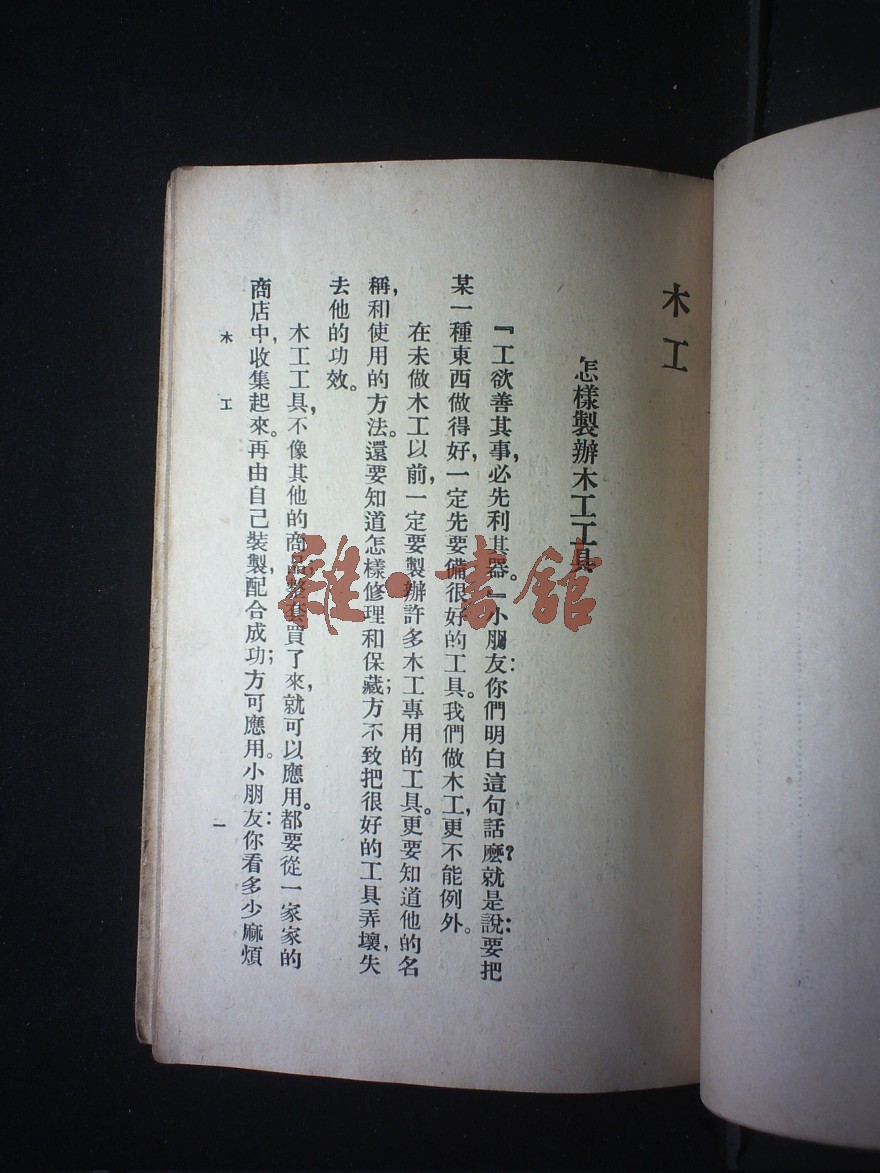 木工
怎樣製辦木工工具
『工欲善其事,必先利其器。』小朋友:你們明白這句話麼?就是說:要把
某一種東西做得好,一定先要備很好的工具。我們做木工,更不能例外。
在未做木工以前,一定要製辦許多木工專用的工具。更要知道他的名
稱,和使用的方法。還要知道怎樣修理和保藏;方不致把很好的工具弄壞,失
去他的功效。
木工工具,不像其他的商品,整套買了來,就可以應用。都要從一家家的
商店中,收集起來。再由自己裝製,配合成功;方可應用。小朋友:你看多少麻煩
木工
一
雜·書館